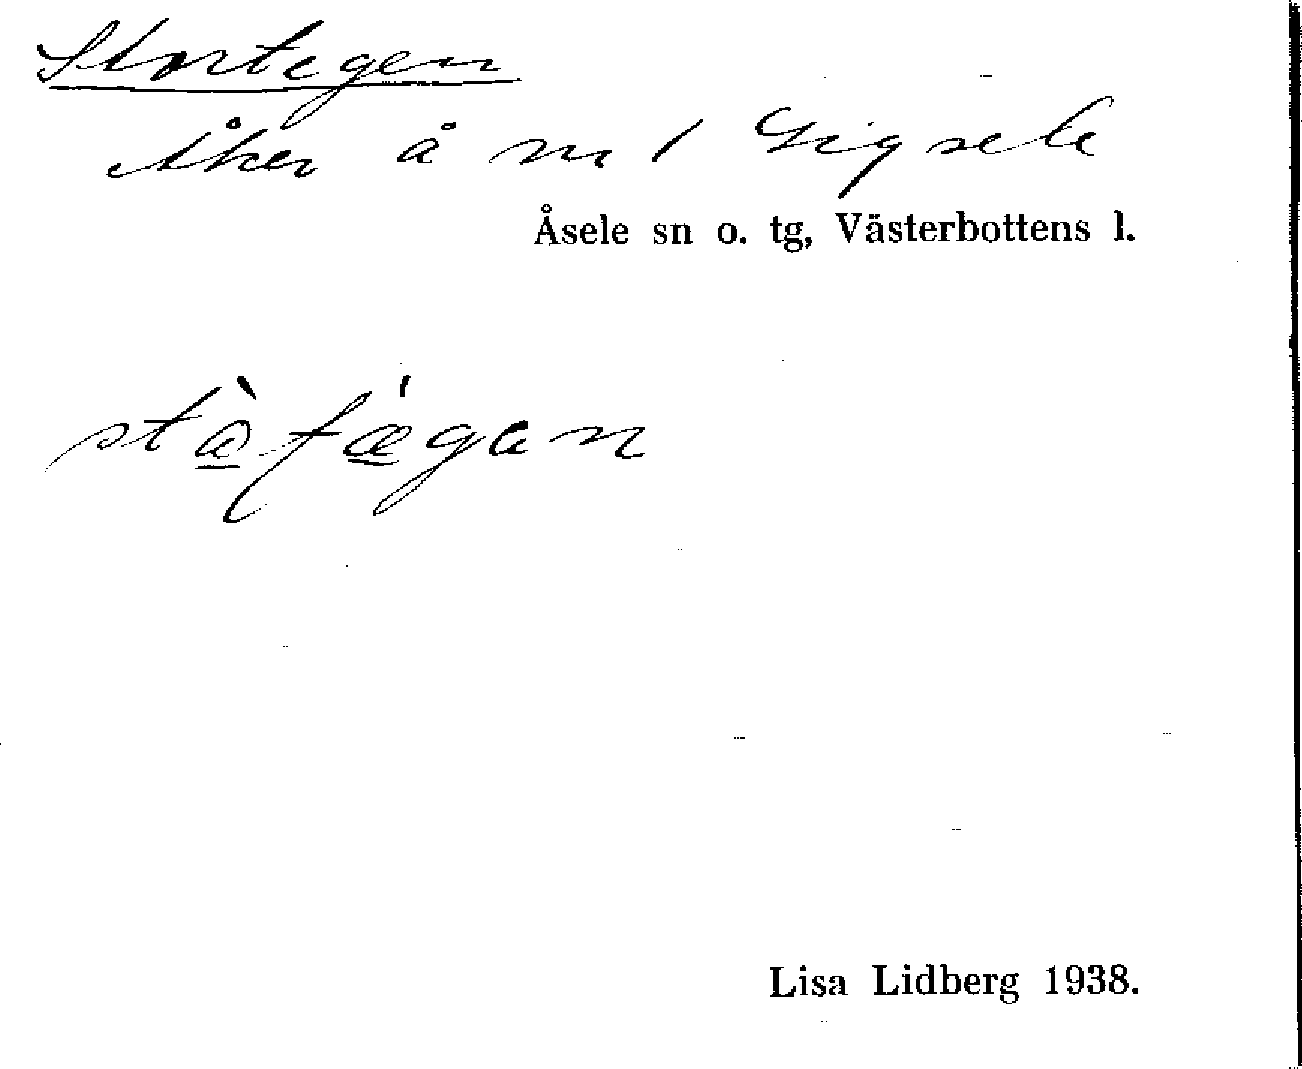 Stortegen
Åker å nr 1 Gigsele
Åsele sn o. tg, Västerbottens l.
Lisa Lidberg 1938.